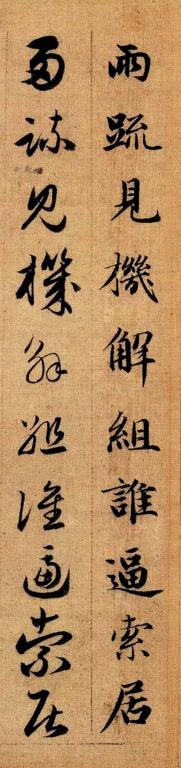 兩疏見機解組誰逼索居
兩疏見機解組誰逼索居